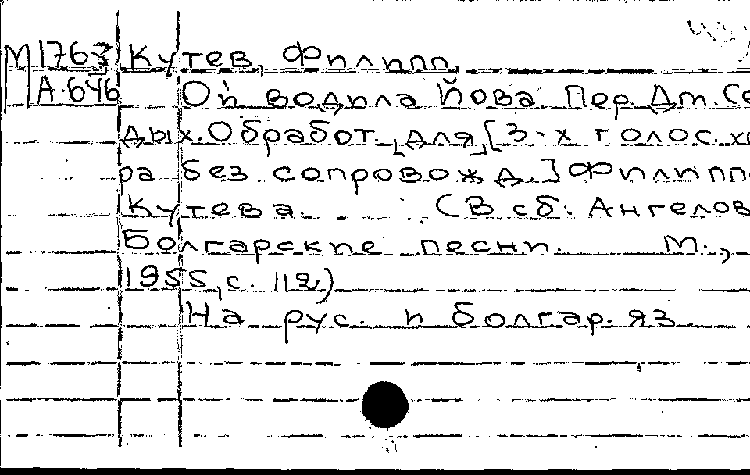 М1763 Кутев, Филипп.
А-646 Ой водила Йова. Пер. Дм. Се
дых. Обработ. для [3-х голос. хо
ра без сопровожд.] Филипп
Кутева. (В сб: Ангелов
Болгарские песни. М.,
1955, с. 112)
На рус. и болгар. яз